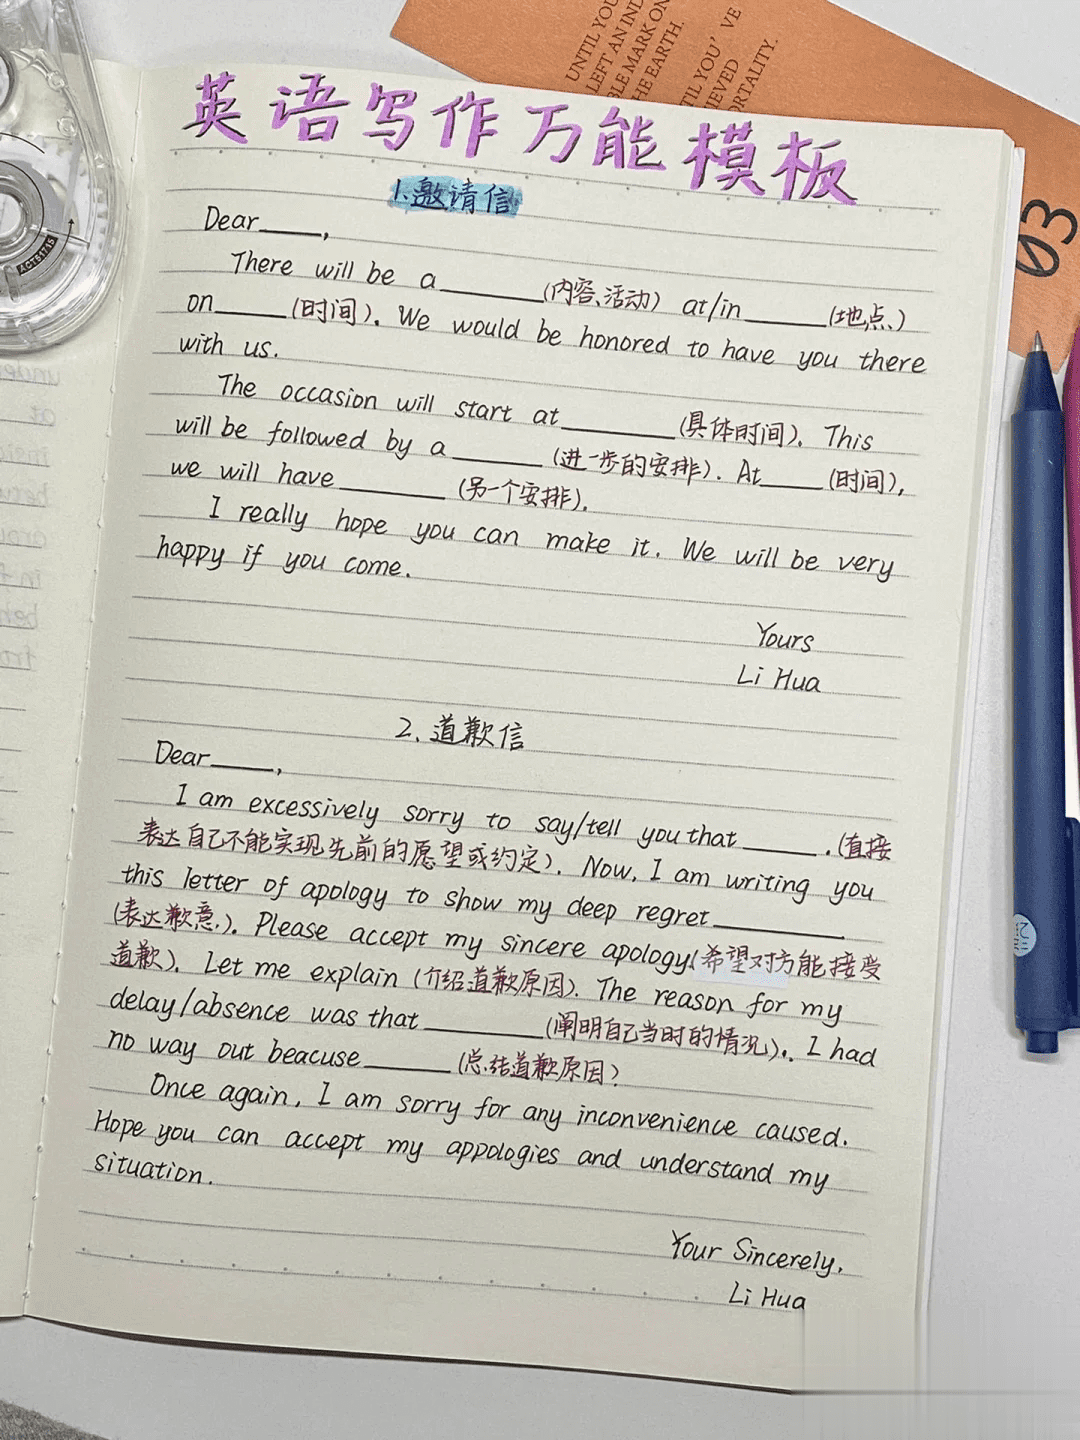 UNTIL YOU
LEFT AN IND
BLE MARK ON
HE EARTH.
TIL YOU'VE
IEVED
ORTALITY.
03
ACTS1715
英语写作万能模板
1.邀请信
Dear____,
There will be a______(内容、活动) at/in_____(地点)
on____(时间). We would be honored to have you there
with us.
The occasion will start at_______(具体时间). This
will be followed by a_____(进一步的安排). At____(时间),
we will have______(另一个安排).
I really hope you can make it. We will be very
happy if you come.
Yours
Li Hua
2.道歉信
Dear____,
I am excessively sorry to say/tell you that_____.(直接
表达自己不能实现先前的愿望或约定). Now, I am writing you
this letter of apology to show my deep regret________
(表达歉意). Please accept my sincere apology(希望对方能接受
道歉). Let me explain (介绍道歉原因). The reason for my
delay/absence was that_______(阐明自己当时的情况). I had
no way out beacuse_____(总结道歉原因)
Once again, I am sorry for any inconvenience caused.
Hope you can accept my appologies and understand my
situation.
Your Sincerely,
Li Hua